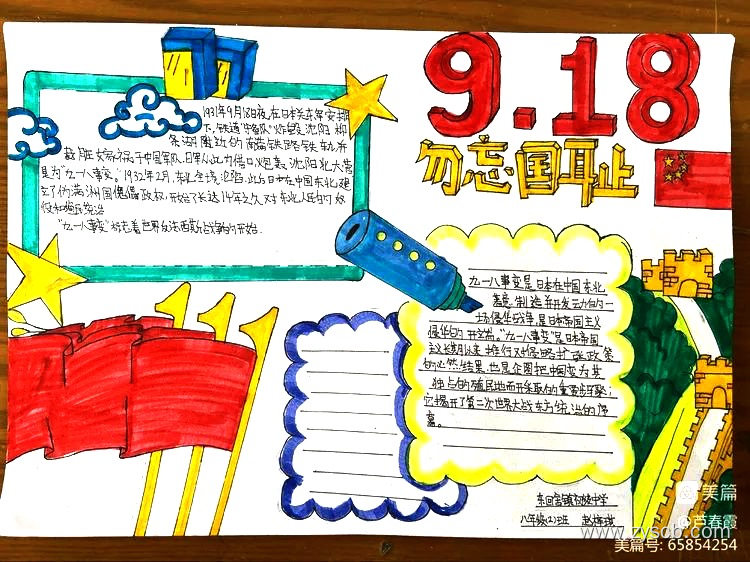 9.18
勿忘国耻
1931年9月18日夜,在日本关东军安排
下,铁道"守备队"炸毁沈阳柳
条湖附近的南满铁路铁轨并
栽赃嫁祸于中国军队,日军以此为借口炮轰沈阳北大营
是为"九一八事变"。1932年2月,东北全境沦陷,此后日本在中国东北建
立了伪满洲国傀儡政权,开始了长达14年之久对东北人民的奴
役和殖民统治
"九一八事变"标志着世界反法西斯战争的开始.
九一八事变是日本在中国东北
蓄意制造并开发动的一
场侵华战争,是日本帝国主义
侵华的开端。"九一八事变"是日本帝国
主义长期以来推行对侵略扩张政策
的必然结果,也是企图把中国变为其
独占的殖民地而采取的重要步骤;
它揭开了第二次世界大战东方战
幕。
东回舍镇初级中学
八年级(2)班 赵
美篇
@芦春霞
www.zyscb.com
美篇号: 65854254